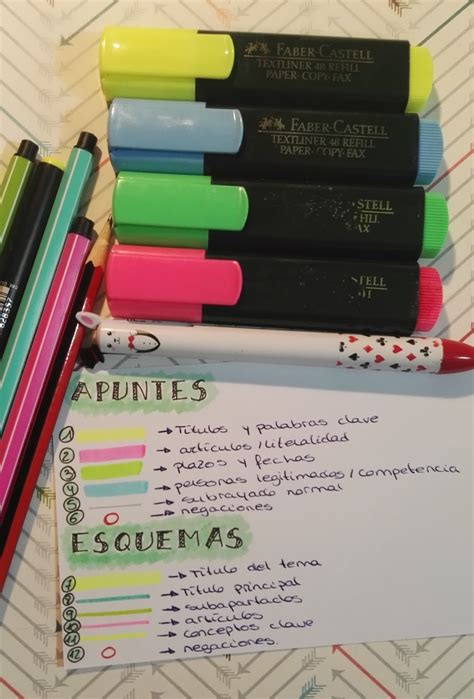 FABER-CASTELL
TEXTLINER 48 REFILL
PAPER-COPY-FAX
FABER-CASTELL
TEXTLINER 48 REFILL
PAPER-COPY-FAX
STELL
FILL
FAX
STELL
APUNTES
1 → Títulos y palabras clave
2 → artículos/literalidad
3 → plazos y fechas
4 → personas legitimados/competencia
5 → subrayado normal
6 → negaciones
ESQUEMAS
7 → Título del tema
8 → Título principal
9 → subapartados
10 → artículos
11 → conceptos clave
12 → negaciones.